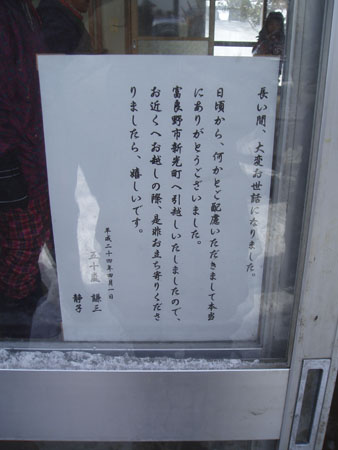 長い間、大変お世話になりました。
日頃から、何かとご配慮いただきまして本当
にありがとうございました。
富良野市新光町へ引越しいたしましたので、
お近くへお越しの際、是非お立ち寄りくださ
りましたら、嬉しいです。
平成二十四年四月一日
五十嵐 謙三
静子